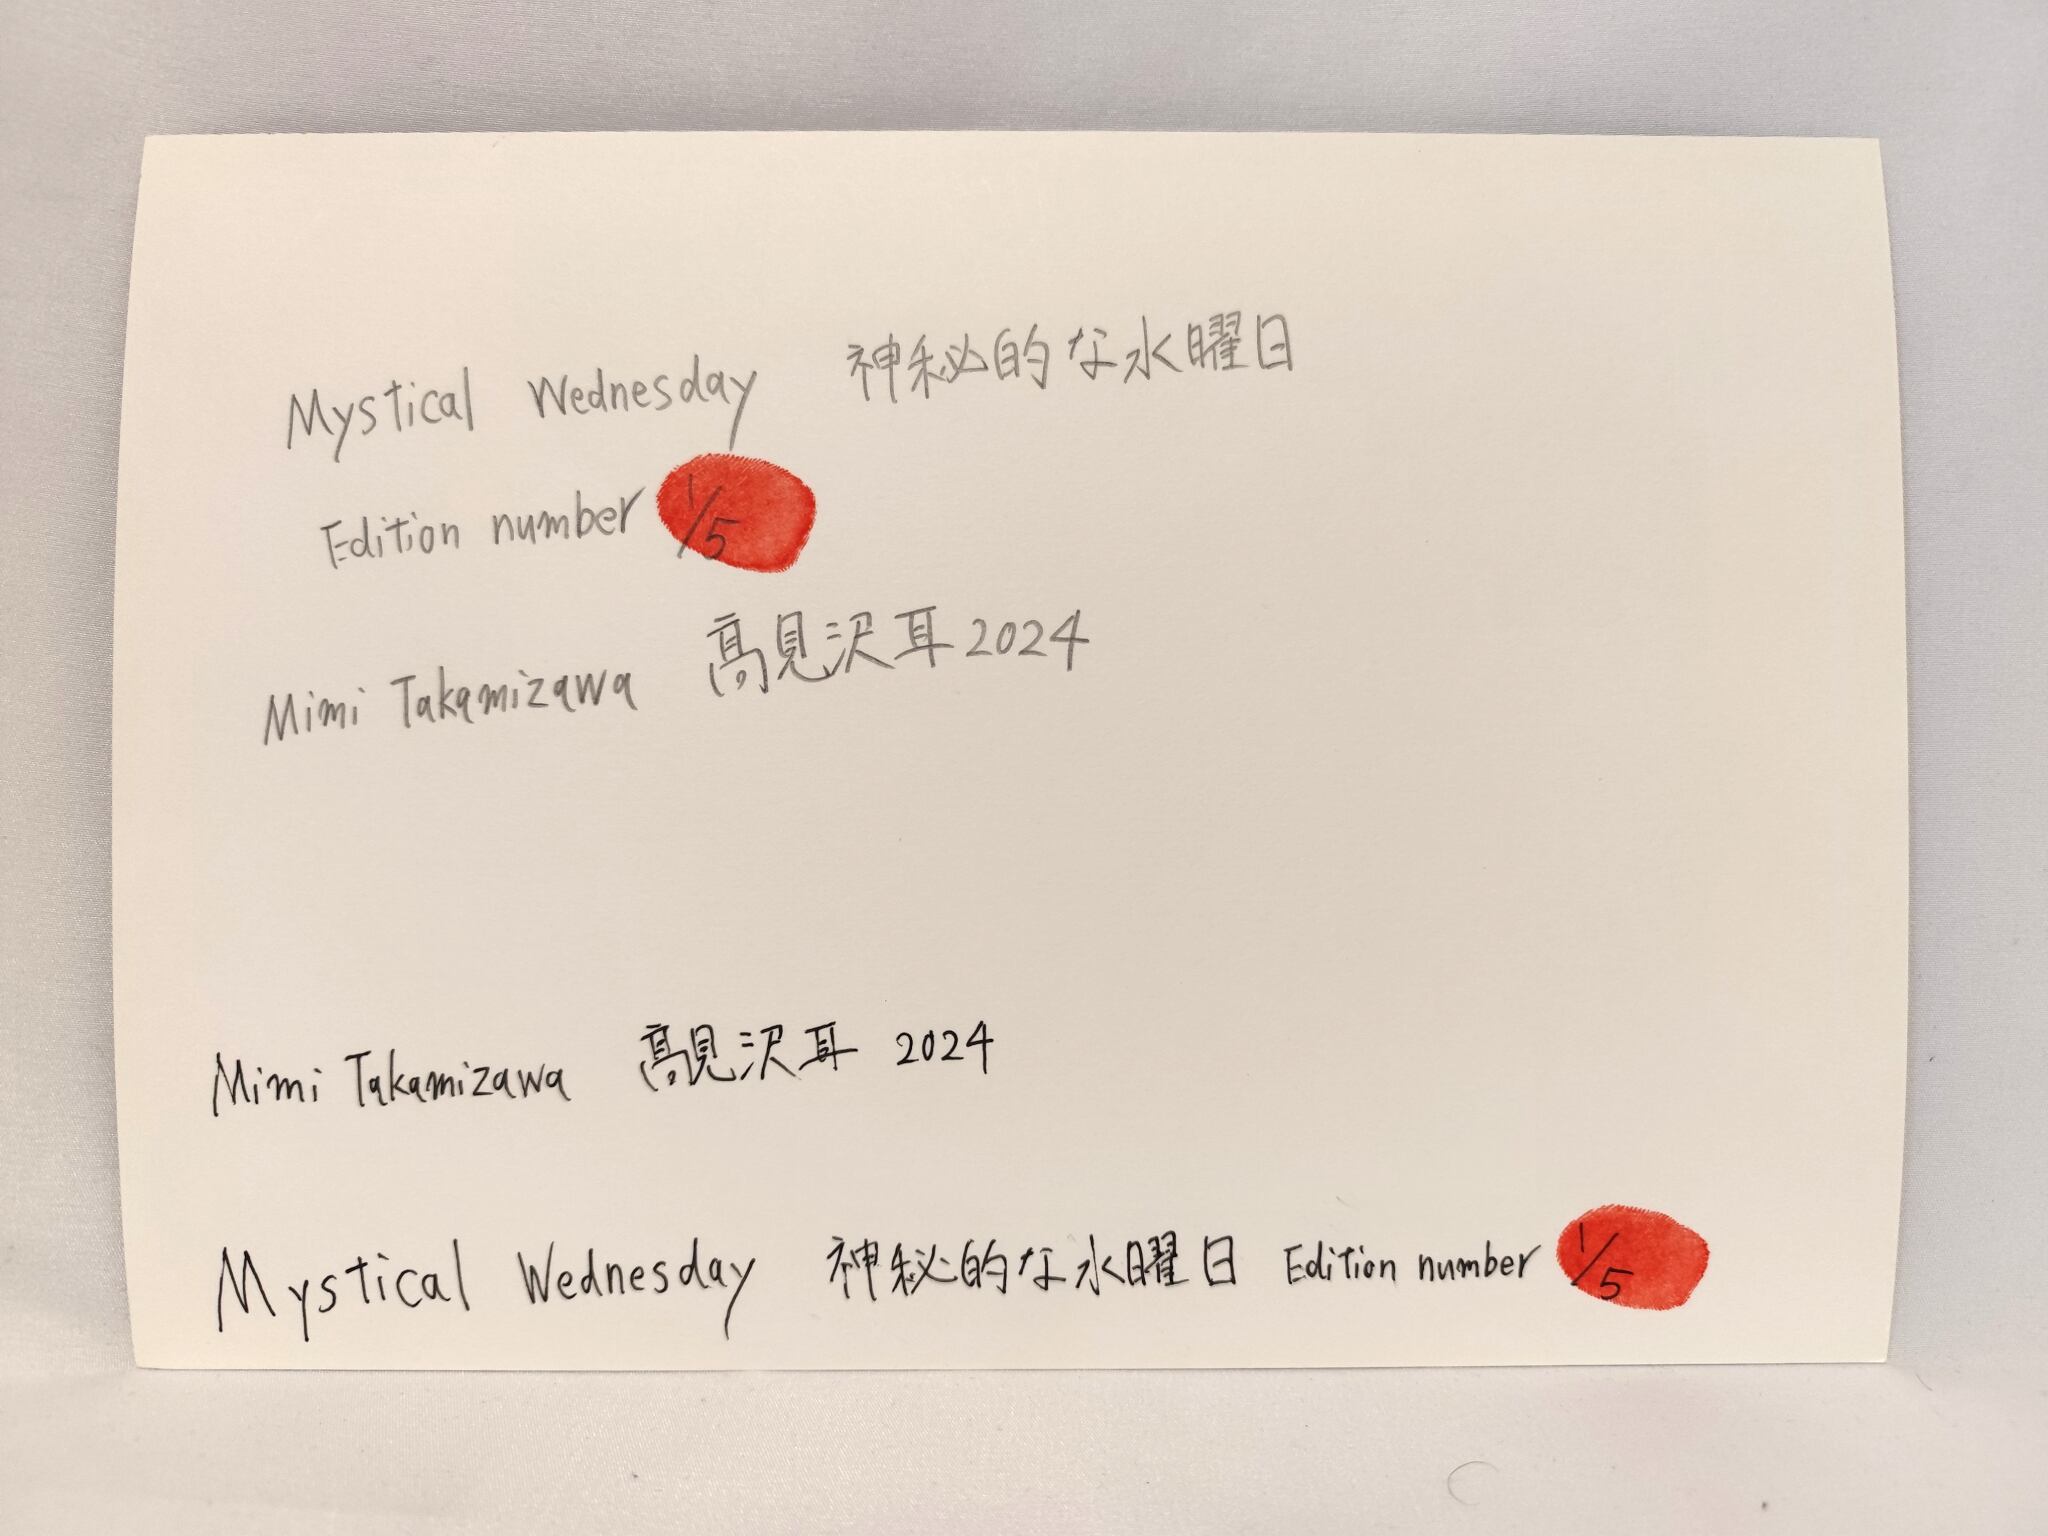 Mystical Wednesday 神秘的な水曜日
Edition number 1/5
Mimi Takamizawa 高見沢耳 2024
Mimi Takamizawa 高見沢耳 2024
Mystical Wednesday 神秘的な水曜日 Edition number 1/5